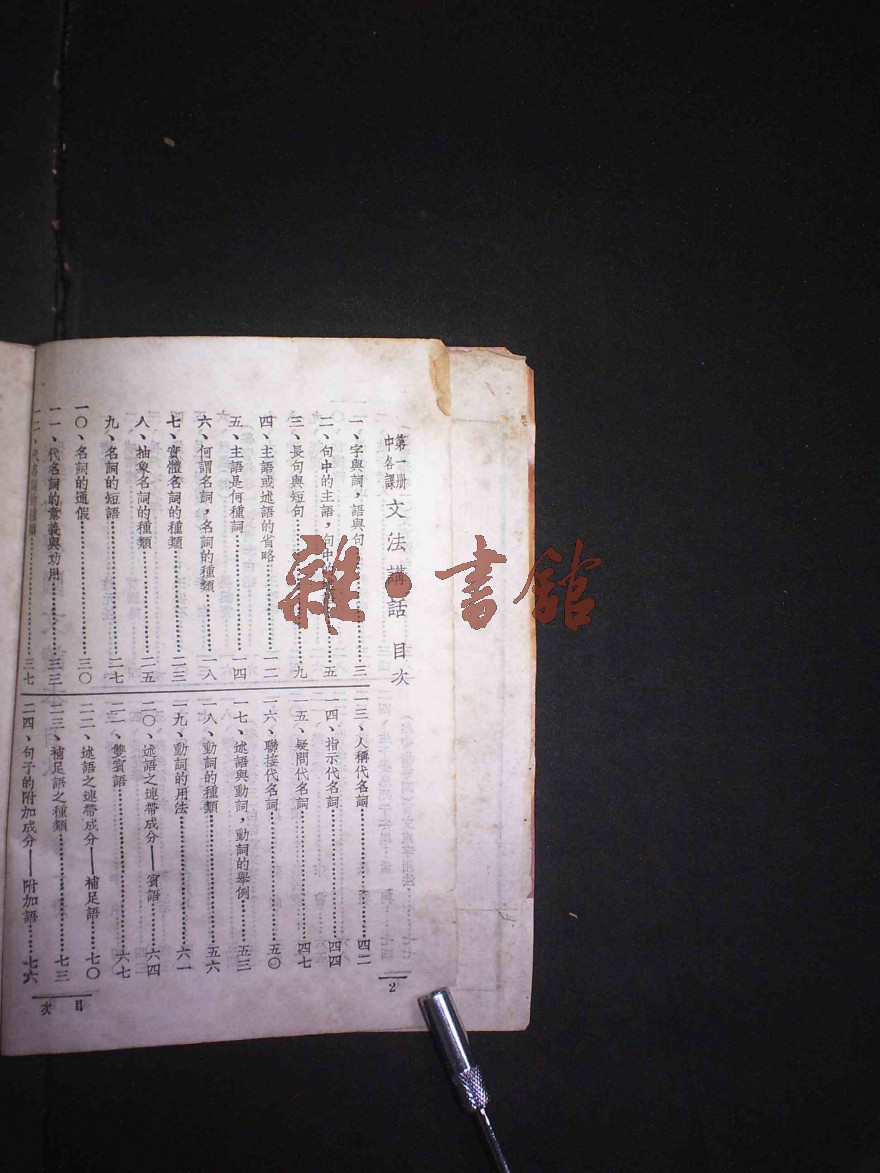 第一册
中各課
文法講話 目次
一、字與詞，語與句…三
二、句中的主語，句中的…五
三、長句與短句…九
四、主語或述語的省略…一二
五、主語是何種詞…一四
六、何謂名詞，名詞的種類…一八
七、實體名詞的種類…二三
八、抽象名詞的種類…二五
九、名詞的短語…二七
一〇、名詞的通假…三〇
一一、代名詞的意義與功用…三三
一二、代名詞的種類…三七
一三、人稱代名詞…四二
一四、指示代名詞…四四
一五、疑問代名詞…四七
一六、聯接代名詞…五〇
一七、述語與動詞，動詞的舉例…五三
一八、動詞的種類…五六
一九、動詞的用法…六一
二〇、述語之連帶成分——賓語…六四
二一、雙賓語…六七
二二、述語之連帶成分——補足語…七〇
二三、補足語之種類…七三
二四、句子的附加成分——附加語…七六
目次
2
雜·書館